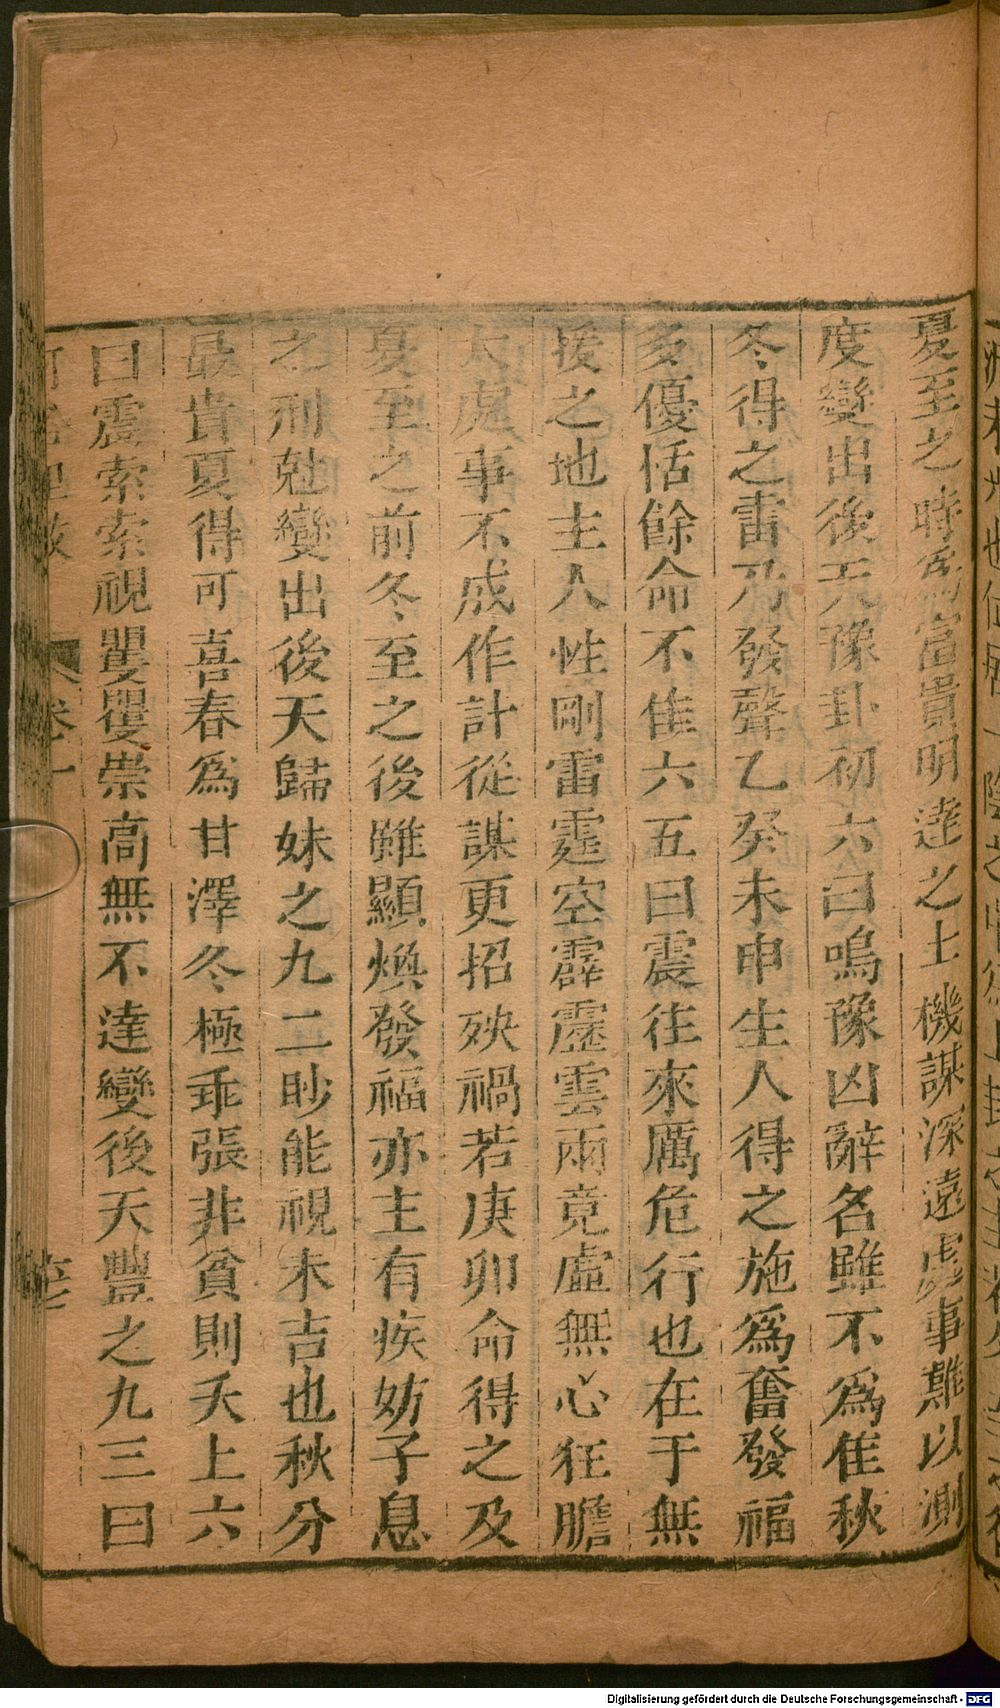 夏至之時為富貴明達之士機謀深遠處事難以測
度變出後天豫卦初六曰鳴豫凶辭名雖不為隹秋
冬得之雷乃發聲乙癸未申生人得之施為奮發福
多優恬餘命不隹六五曰震往來厲危行也在于無
援之地主人性剛雷霆空霹靂雲雨竟虛無心狂膽
大處事不成作計從謀更招殃禍若庚卯命得之及
夏至之前冬至之後雖顯煥發福亦主有疾妨子息
之刑尅變出後天歸妹之九二眇能視未吉也秋分
最貴夏得可喜春為甘澤冬極乖張非貧則夭上六
曰震索索視矍矍崇高無不達變後天豐之九三曰
卷十
Digitalisierung gefördert durch die Deutsche Forschungsgemeinschaft - DFG